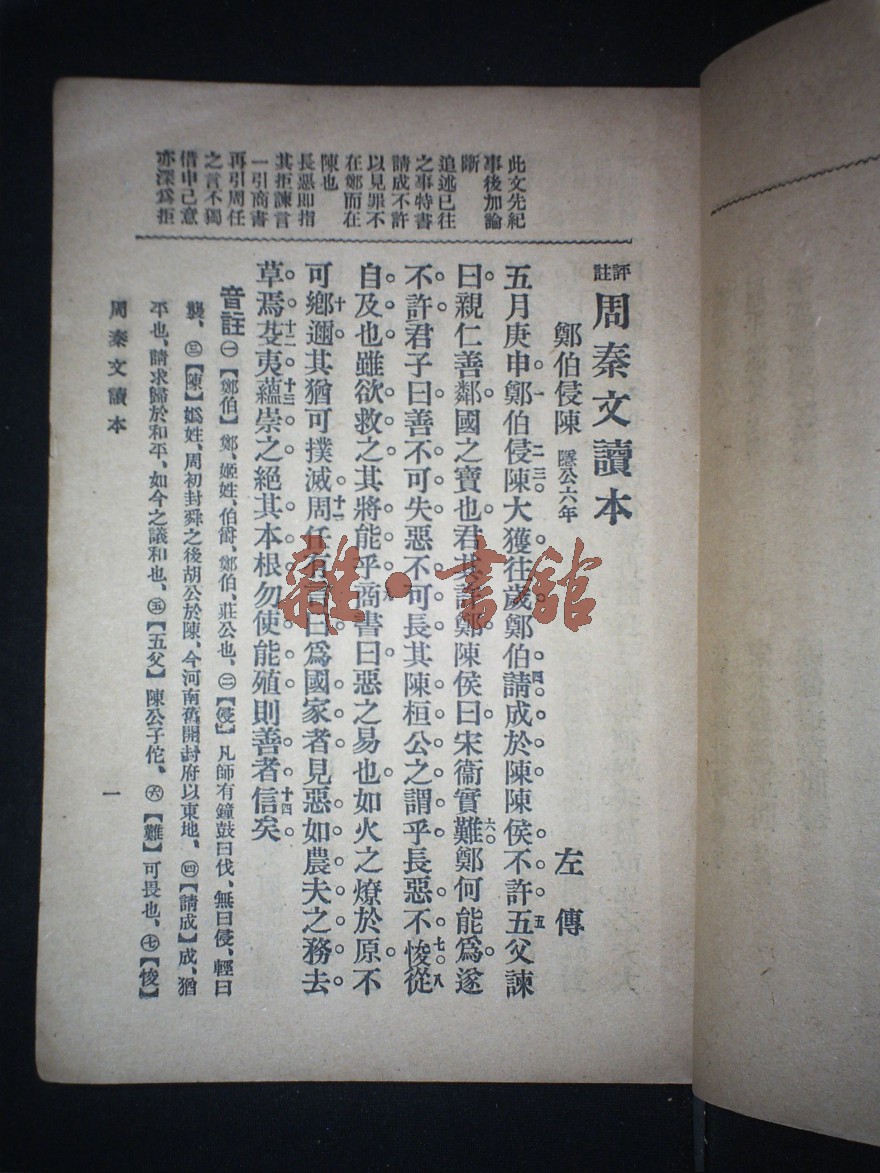 評註周秦文讀本
鄭伯侵陳 隱公六年 左傳
五月庚申鄭伯侵陳大獲往歲鄭伯請成於陳陳侯不許五父諫
曰親仁善鄰國之寶也君其許鄭陳侯曰宋衞實難鄭何能爲遂
不許君子曰善不可失惡不可長其陳桓公之謂乎長惡不悛從
自及也雖欲救之其將能乎商書曰惡之易也如火之燎於原不
可鄉邇其猶可撲滅周任有言曰爲國家者見惡如農夫之務去
草焉芟夷蘊崇之絕其本根勿使能殖則善者信矣
音註㊀【鄭伯】鄭、姬姓、伯爵、鄭伯、莊公也、㊁【侵】凡師有鐘鼓曰伐、無曰侵、輕曰
襲、㊂【陳】嬀姓、周初封舜之後胡公於陳、今河南舊開封府以東地、㊃【請成】成、猶
平也、請求歸於和平、如今之議和也、㊄【五父】陳公子佗、㊅【難】可畏也、㊆【悛】
此文先紀
事後加論
斷
追述已往
之事特書
請成不許
以見罪不
在鄭而在
陳也
長惡卽指
其拒諫言
一引商書
再引周任
之言不獨
借申己意
亦深爲拒
周秦文讀本
一
雜·書館